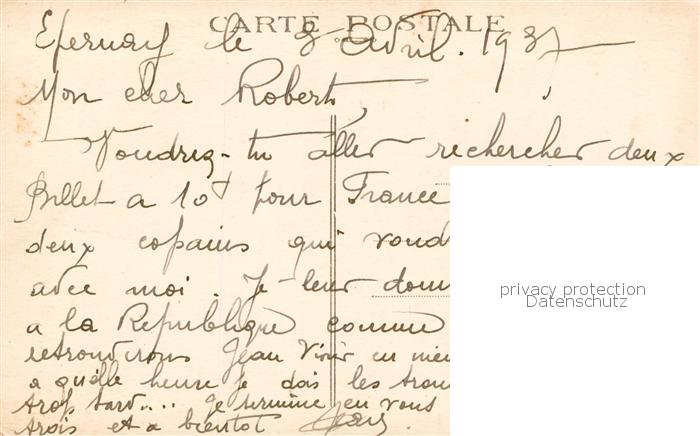 CARTE POSTALE
Epernay le 8 Avril. 1937
Mon cher Robert,
Voudriez-tu aller rechercher deux
Billet a 10 pour France
deux copains qui voud
avec moi. Je leur donn
a la Republique comme
retrouverons Jean en
a quelle heure je dois les trou
trop tard.... Je termine en vous
trois et a bientot
privacy protection
Datenschutz